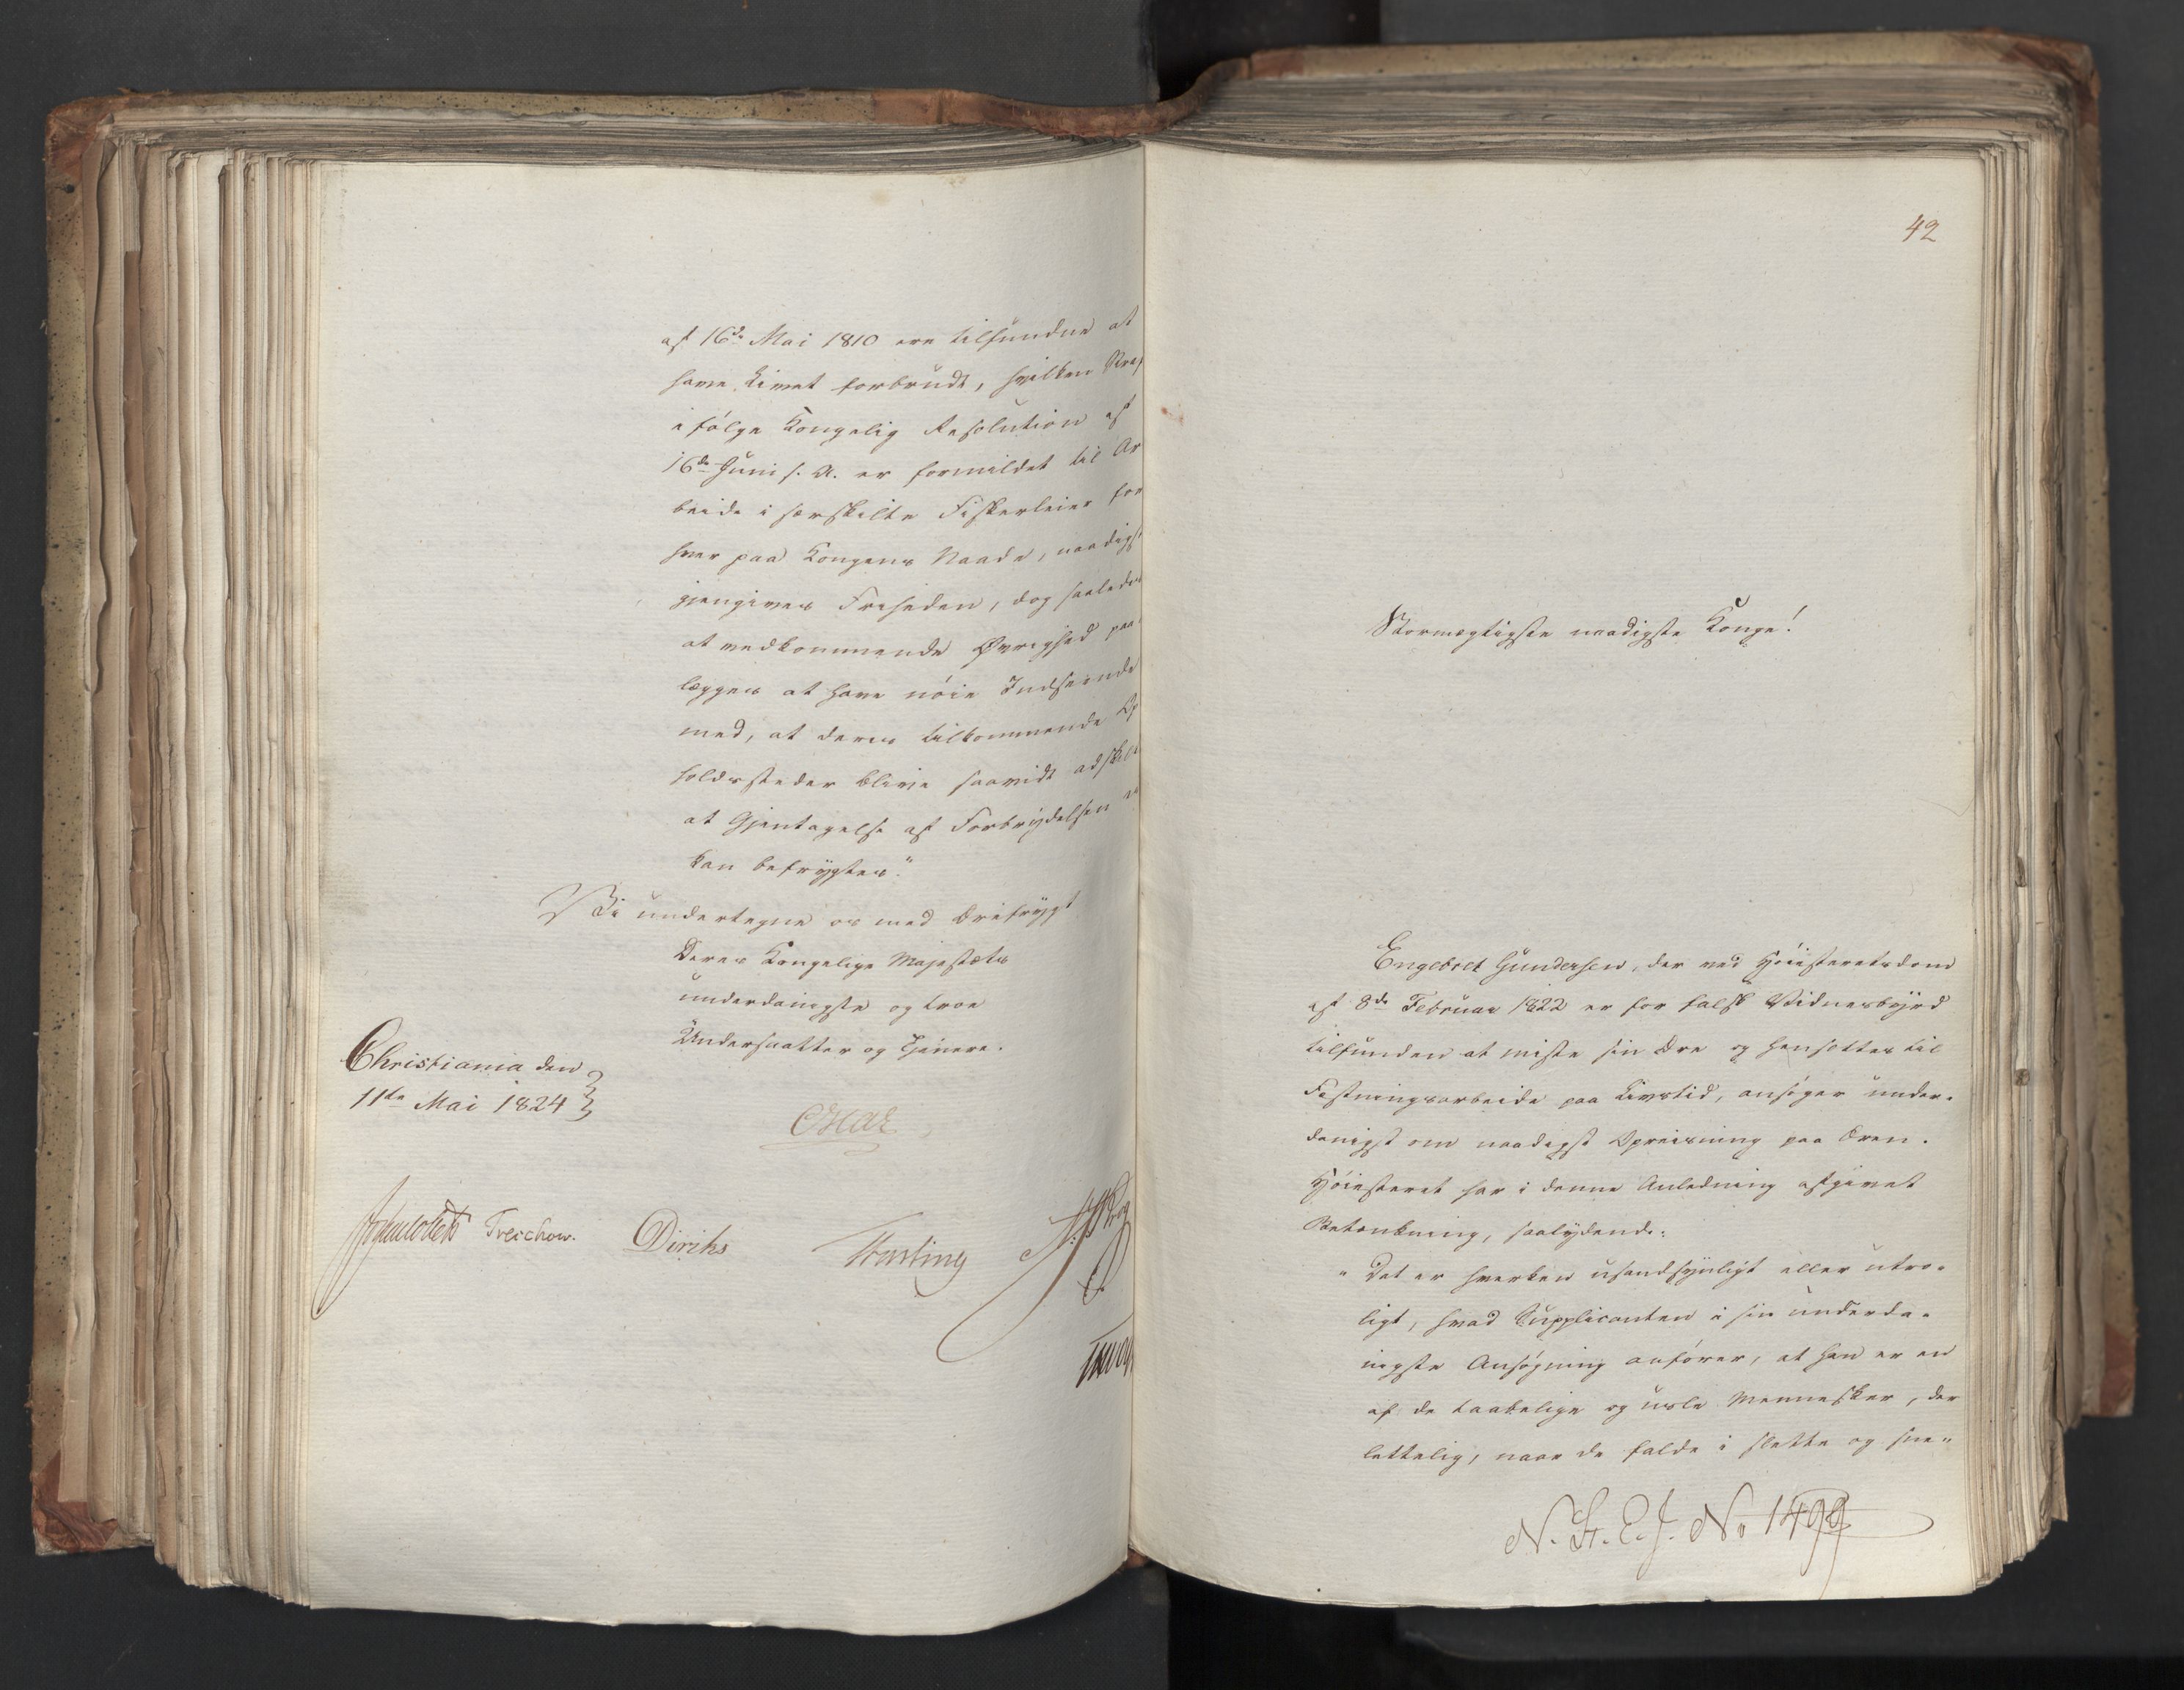 af 16de Mai 1810 ere tilfundne at
have Livet forbrudt, hvilken Straf
ifölge Kongelig Resolution af
16de Juni s. A. er formildet til Ar
beide i særskilte Fiskerleier for
hver paa Kongens Naade, naadigst
gjengives Friheden, dog saaledes
at vedkommende Øvrighed paa
lægges at have nöie Indseende
med, at deres tilkommende Op
holdssteder blive saavidt adskilte
at Gjentagelse af Forbrydelsen ei
kan befrygtes."
Vi undertegne os med Ærefrygt
Deres Kongelige Majestæts
underdanigste og troe
Undersaatter og Tjenere.
Christiania den
11te Mai 1824
Oscar
JCollett Treschow. Diriks
Fasting
42
Stormægtigste naadigste Konge!
Engebret Gundersen, der ved Höiesteretsdom
af 8de Februar 1822 er for falsk Vidnesbyrd
tilfunden at miste sin Ære og hensættes til
Fæstningsarbeide paa Livstid, ansöger under-
danigst om naadigst Opreisning paa Æren.
Höiesteret har i denne Anledning afgivet
Betænkning, saalydende:
"Det er hverken usandsynligt eller utro-
ligt, hvad Supplicanten i sin underda-
nigste Ansögning anförer, at han er en
af de taabelige og usle Mennesker, der
lettelig, naar de falde i slette og sne-
N. St. E. J. No 1499